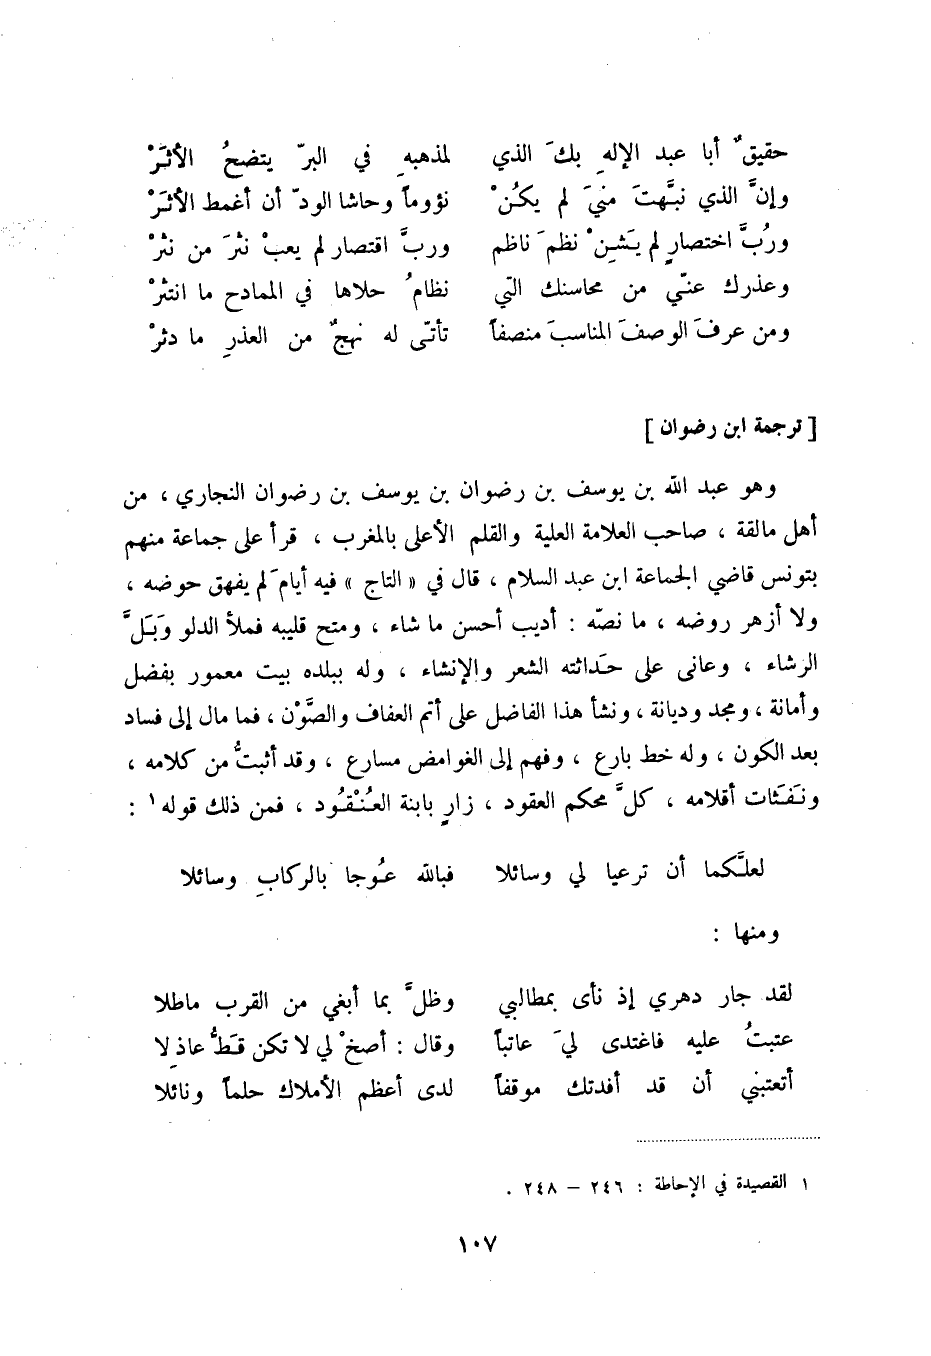 حقيقٌ أبا عبد الإلهِ بكَ الذي لمذهبهِ في البرّ يتضحُ الأثَرْ
وإنَّ الذي نبَّهتَ منيَ لم يكُنْ نؤوماً وحاشا الودّ أن أغمط الأثَرْ
ورُبَّ اختصارٍ لم يَشِنْ نظمَ ناظم وربَّ اقتصار لم يعبْ نثرَ من نثرْ
وعذرك عنّي من محاسنك التي نظامُ حلاها في الممادح ما انتثرْ
ومن عرفَ الوصفَ المناسبَ منصفاً تأتّى له نهجٌ من العذرِ ما دثرْ
[ ترجمة ابن رضوان ]
وهو عبد الله بن يوسف بن رضوان بن يوسف بن رضوان النجاري ، من
أهل مالقة ، صاحب العلامة العلية والقلم الأعلى بالمغرب ، قرأ على جماعة منهم
بتونس قاضي الجماعة ابن عبد السلام ، قال في « التاج » فيه أيامَ لم يفهق حوضه ،
ولا أزهر روضه ، ما نصّه : أديب أحسن ما شاء ، ومتح قليبه فملأ الدلو وَبَلَّ
الرشاء ، وعانى على حَداثته الشعر والإنشاء ، وله ببلده بيت معمور بفضل
وأمانة ، ومجد وديانة ، ونشأ هذا الفاضل على أتم العفاف والصَّوْن ، فما مال إلى فساد
بعد الكون ، وله خط بارع ، وفهم إلى الغوامض مسارع ، وقد أثبتُّ من كلامه ،
ونَفَثات أقلامه ، كلَّ محكم العقود ، زارٍ بابنة العُنْقُود ، فمن ذلك قوله ١ :
لعلَّكما أن ترعيا لي وسائلا فبالله عُوجا بالركابِ وسائلا
ومنها :
لقد جار دهري إذ نأى بمطالبي وظلَّ بما أبغي من القرب ماطلا
عتبتُ عليه فاغتدى ليَ عاتباً وقال : أصخْ لي لا تكن قَطُّ عاذِلا
أتعتبني أن قد أفدتك موقفاً لدى أعظم الأملاك حلماً ونائلا
١ القصيدة في الإحاطة : ٢٤٦ – ٢٤٨ .
١٠٧